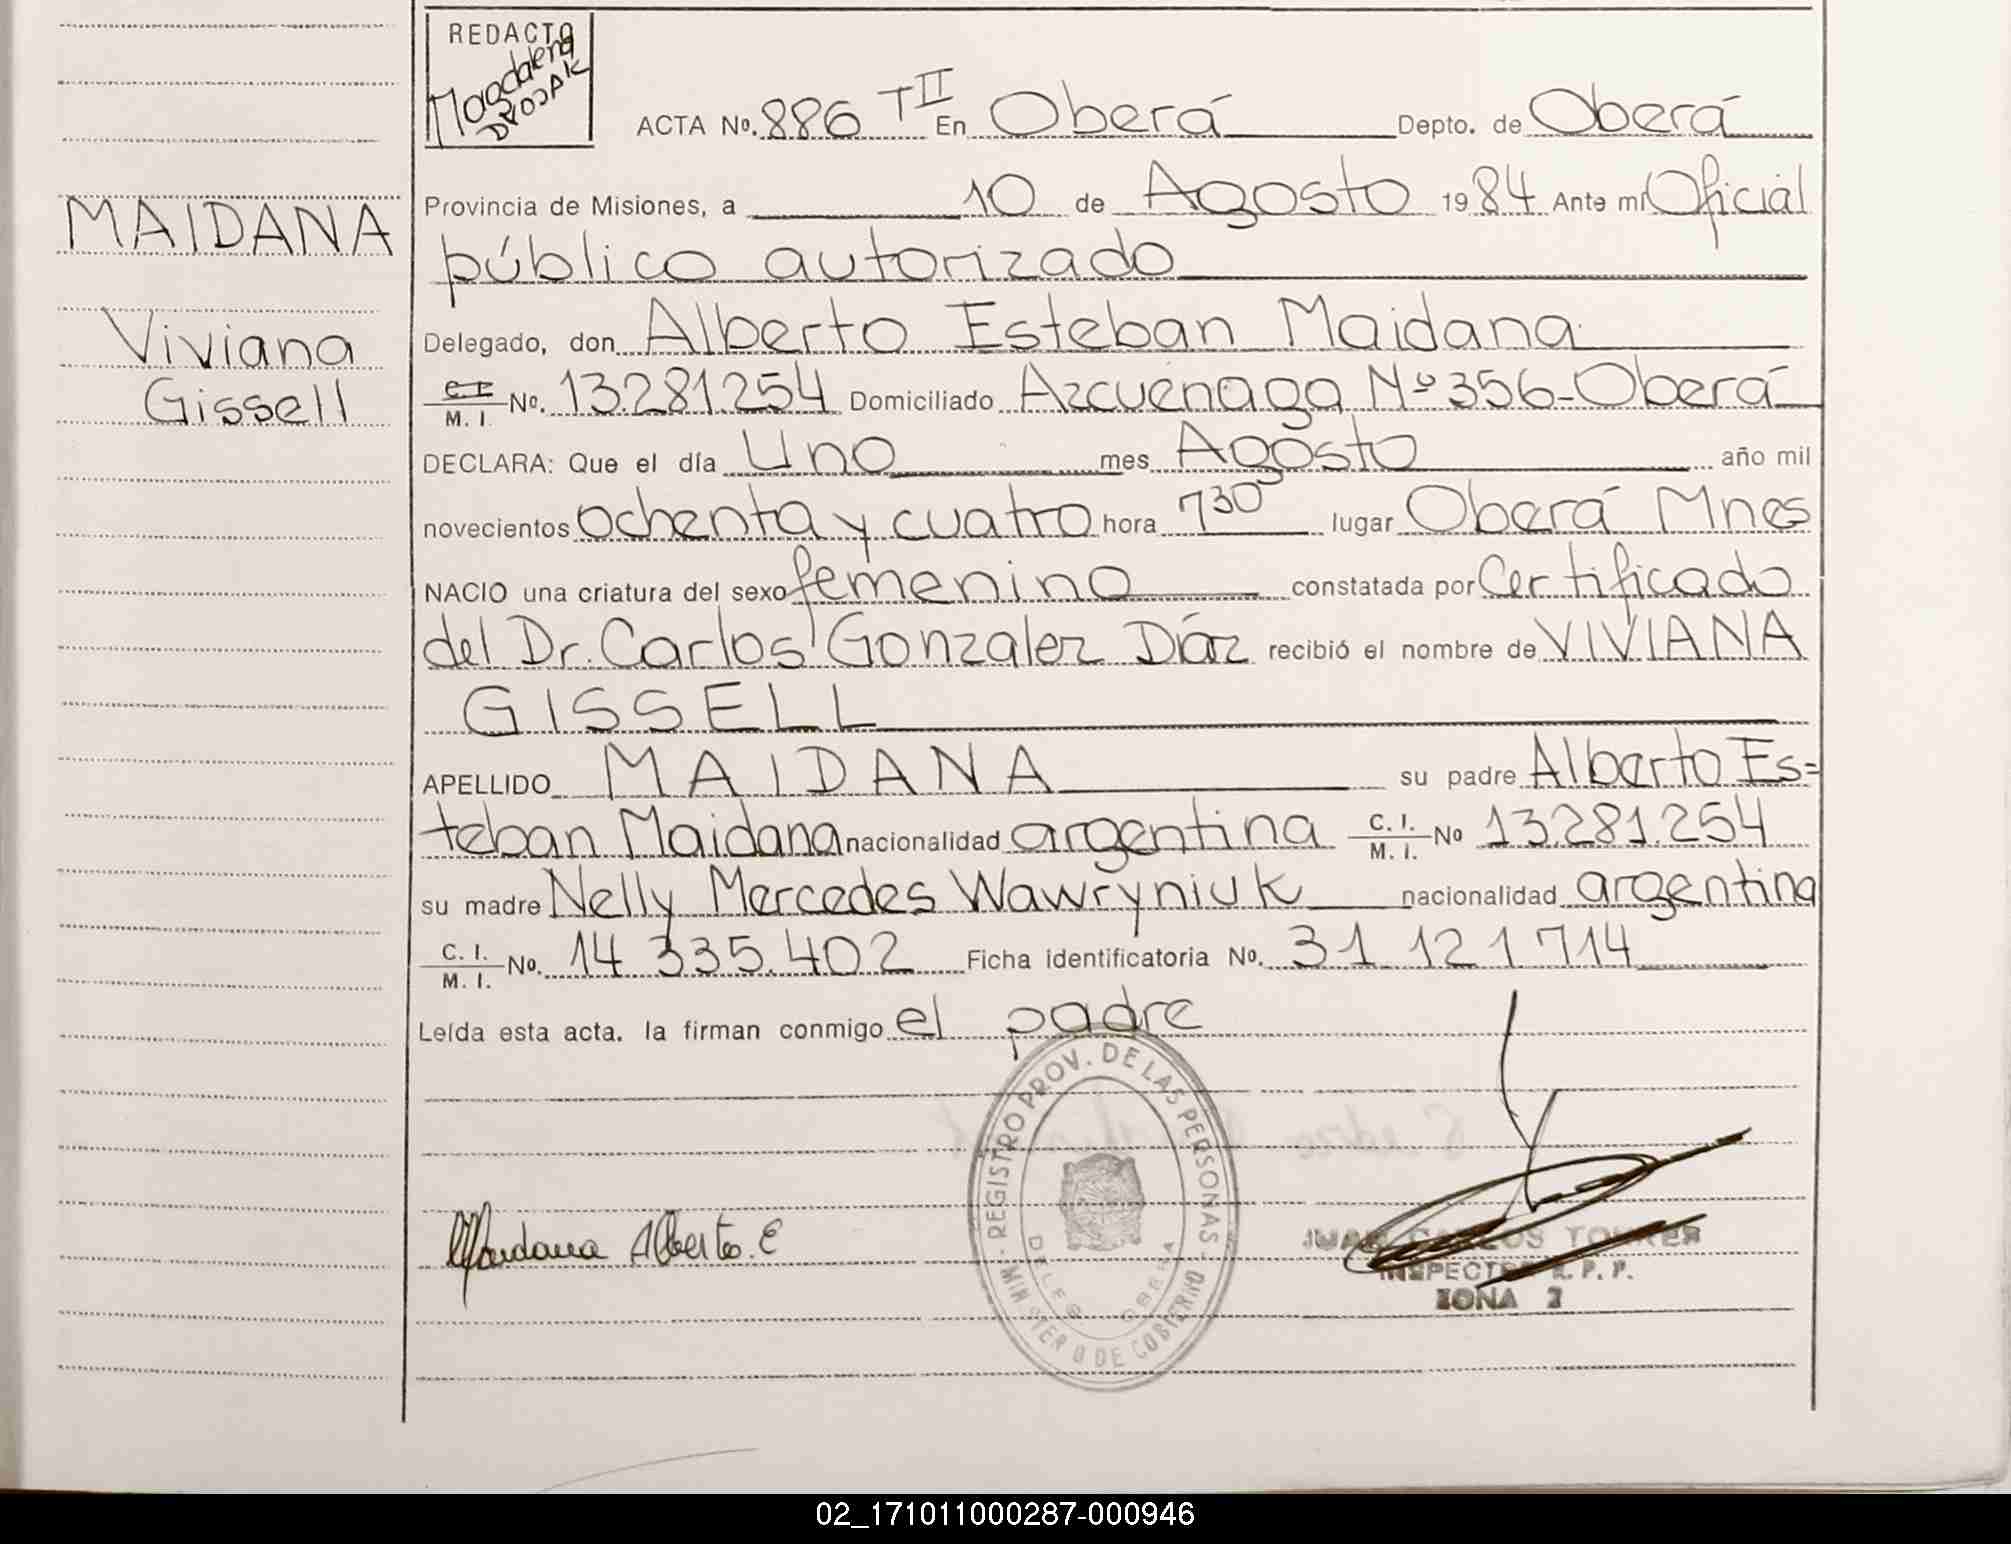 REDACTO
Magdalena
DROZAK
ACTA No. 886 TII En Oberá Depto. de Oberá
MAIDANA
Viviana
Gissell
Provincia de Misiones, a 10 de Agosto 1984 Ante mí Oficial
público autorizado
Delegado, don Alberto Esteban Maidana
C.I. M. I. No. 13.281.254 Domiciliado Azcuénaga Nº 356-Oberá
DECLARA: Que el día Uno mes Agosto año mil
novecientos ochenta y cuatro hora 730 lugar Oberá Mnes
NACIO una criatura del sexo femenino constatada por Certificado
del Dr. Carlos Gonzalez Díaz recibió el nombre de VIVIANA
GISSELL
APELLIDO MAIDANA su padre Alberto Es=
teban Maidana nacionalidad argentina C. I. M. I. No 13.281.254
su madre Nelly Mercedes Wawryniuk nacionalidad argentina
C. I. M. I. No. 14 335.402 Ficha identificatoria No. 31 121 714
Leída esta acta. la firman conmigo el padre
REGISTRO PROV. DE LAS PERSONAS
MINISTERIO DE GOBIERNO
DELEG. OBERA
Maidana Alberto. E
JUAN CARLOS TORRES
INSPECTOR R. P. P.
ZONA 2
02_171011000287-000946